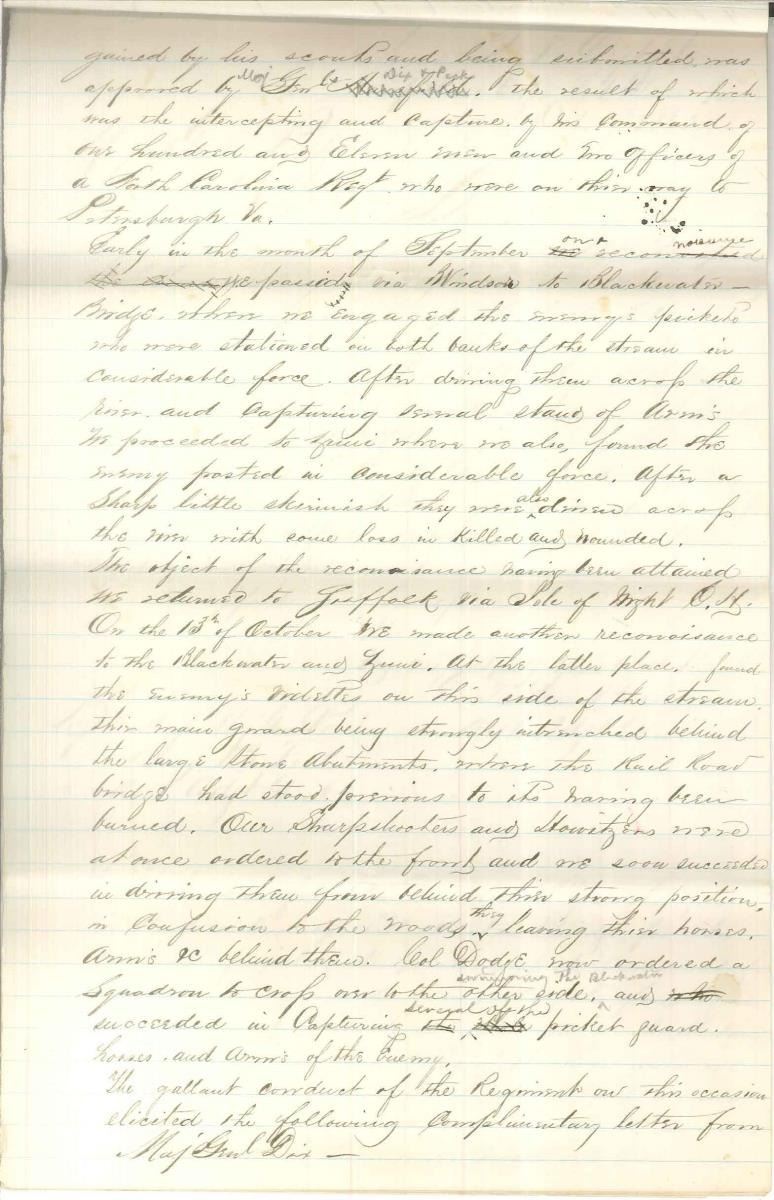 gained by his scouts and being submitted was
approved by Maj Genls Dix & Peck. the result of which
was the intercepting and Capture. by his Command. of
one hundred and Eleven men and two officers of
a North Carolina Regt. who were on thier way to
Petersburgh Va.
Early in the month of September on a reconnoisance
we passed via Windsor to Blackwater —
Bridge. where we engaged the enemy's pickets
who were stationed on both banks of the stream in
considerable force. After driving them across the
river. and Capturing several stand of Arms
We proceeded to Zuni where we also, found the
enemy posted in considerable force. After a
Sharp little skirmish they were also driven across
the river with some loss in Killed and wounded.
The object of the reconoisance having been attained
we returned to Suffolk via Isle of Wight C.H.
On the 13th of October We made another reconoisance
to the Blackwater and Zuni. At the latter place. found
the Enemy's Videttes on this side of the stream.
thier main guard being strongly intrenched behind
the large Stone Abutments. where the Rail Road
bridge had stood previous to its having been
burned. Our Sharpshooters and Howitzers were
at once ordered to the front and we soon succeeded
in driving them from behind thier strong position.
in Confusion to the woods they leaving thier horses.
Arms &c behind them. Col Dodge now ordered a
Squadron to cross over to the other side. The Blackwater and
succeeded in Capturing several of the picket guard.
horses. and Arms of the Enemy.
The gallant conduct of the Regiment on this occasion
elicited the following Complimentary letter from
Maj Genl Dix —